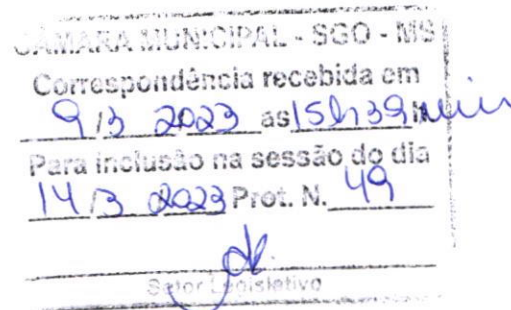 CÂMARA MUNICIPAL - SGO - MS
Correspondência recebida em
9/3 2023 as 15h39min
Para inclusão na sessão do dia
14/3 2023 Prot. N. 49
Setor Legislativo